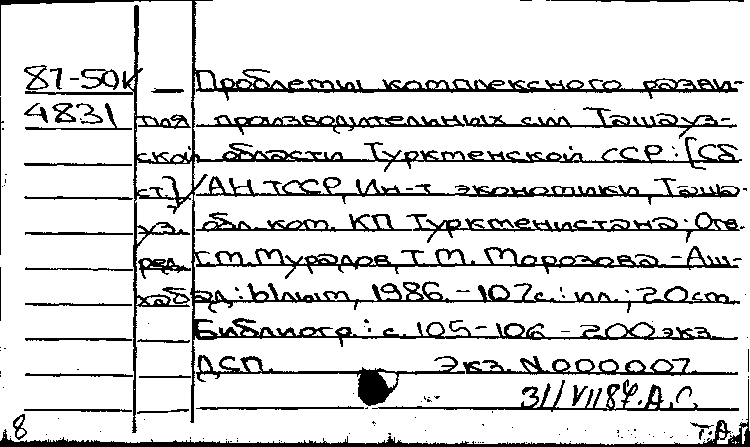 87-50К — Проблемы комплексного разви-
4831 тия производительных сил Ташауз-
ской области Туркменской ССР : [Сб
ст.] / АН ТССР, Ин-т экономики, Таша-
уз. обл. ком. КП Туркменистана ; Отв.
ред. Г.М. Мурадов, Т.М. Морозова. - Аш-
хабад : Ылым, 1986. - 107с. : ил. ; 20см
Библиогр : с. 105-106 - 200 экз
ДСП. Экз. N 000007.
31/VII 87. А.С.
8 Т.А.